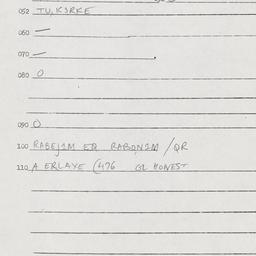 052 TU, KJRKE
060 —
070 —
080 O
090 O
100 RABEJIM EQ RABQNIM / QR
110 A ERLAYE (476 GL HONEST